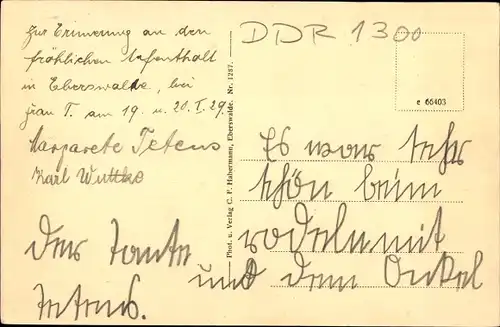 DDR 1300
zur Erinnerung an den
fröhlichen Aufenthalt
in Eberswalde, bei
Frau T. am 19. u. 20. I. 29.
Margarete Tetens
Karl Wuttke
Phot. u. Verlag C. F. Habermann, Eberswalde. Nr. 1287.
e 66403
Es war sehr
schön beim
rodeln mit
und dem Onkel
der Tante
Tetens.